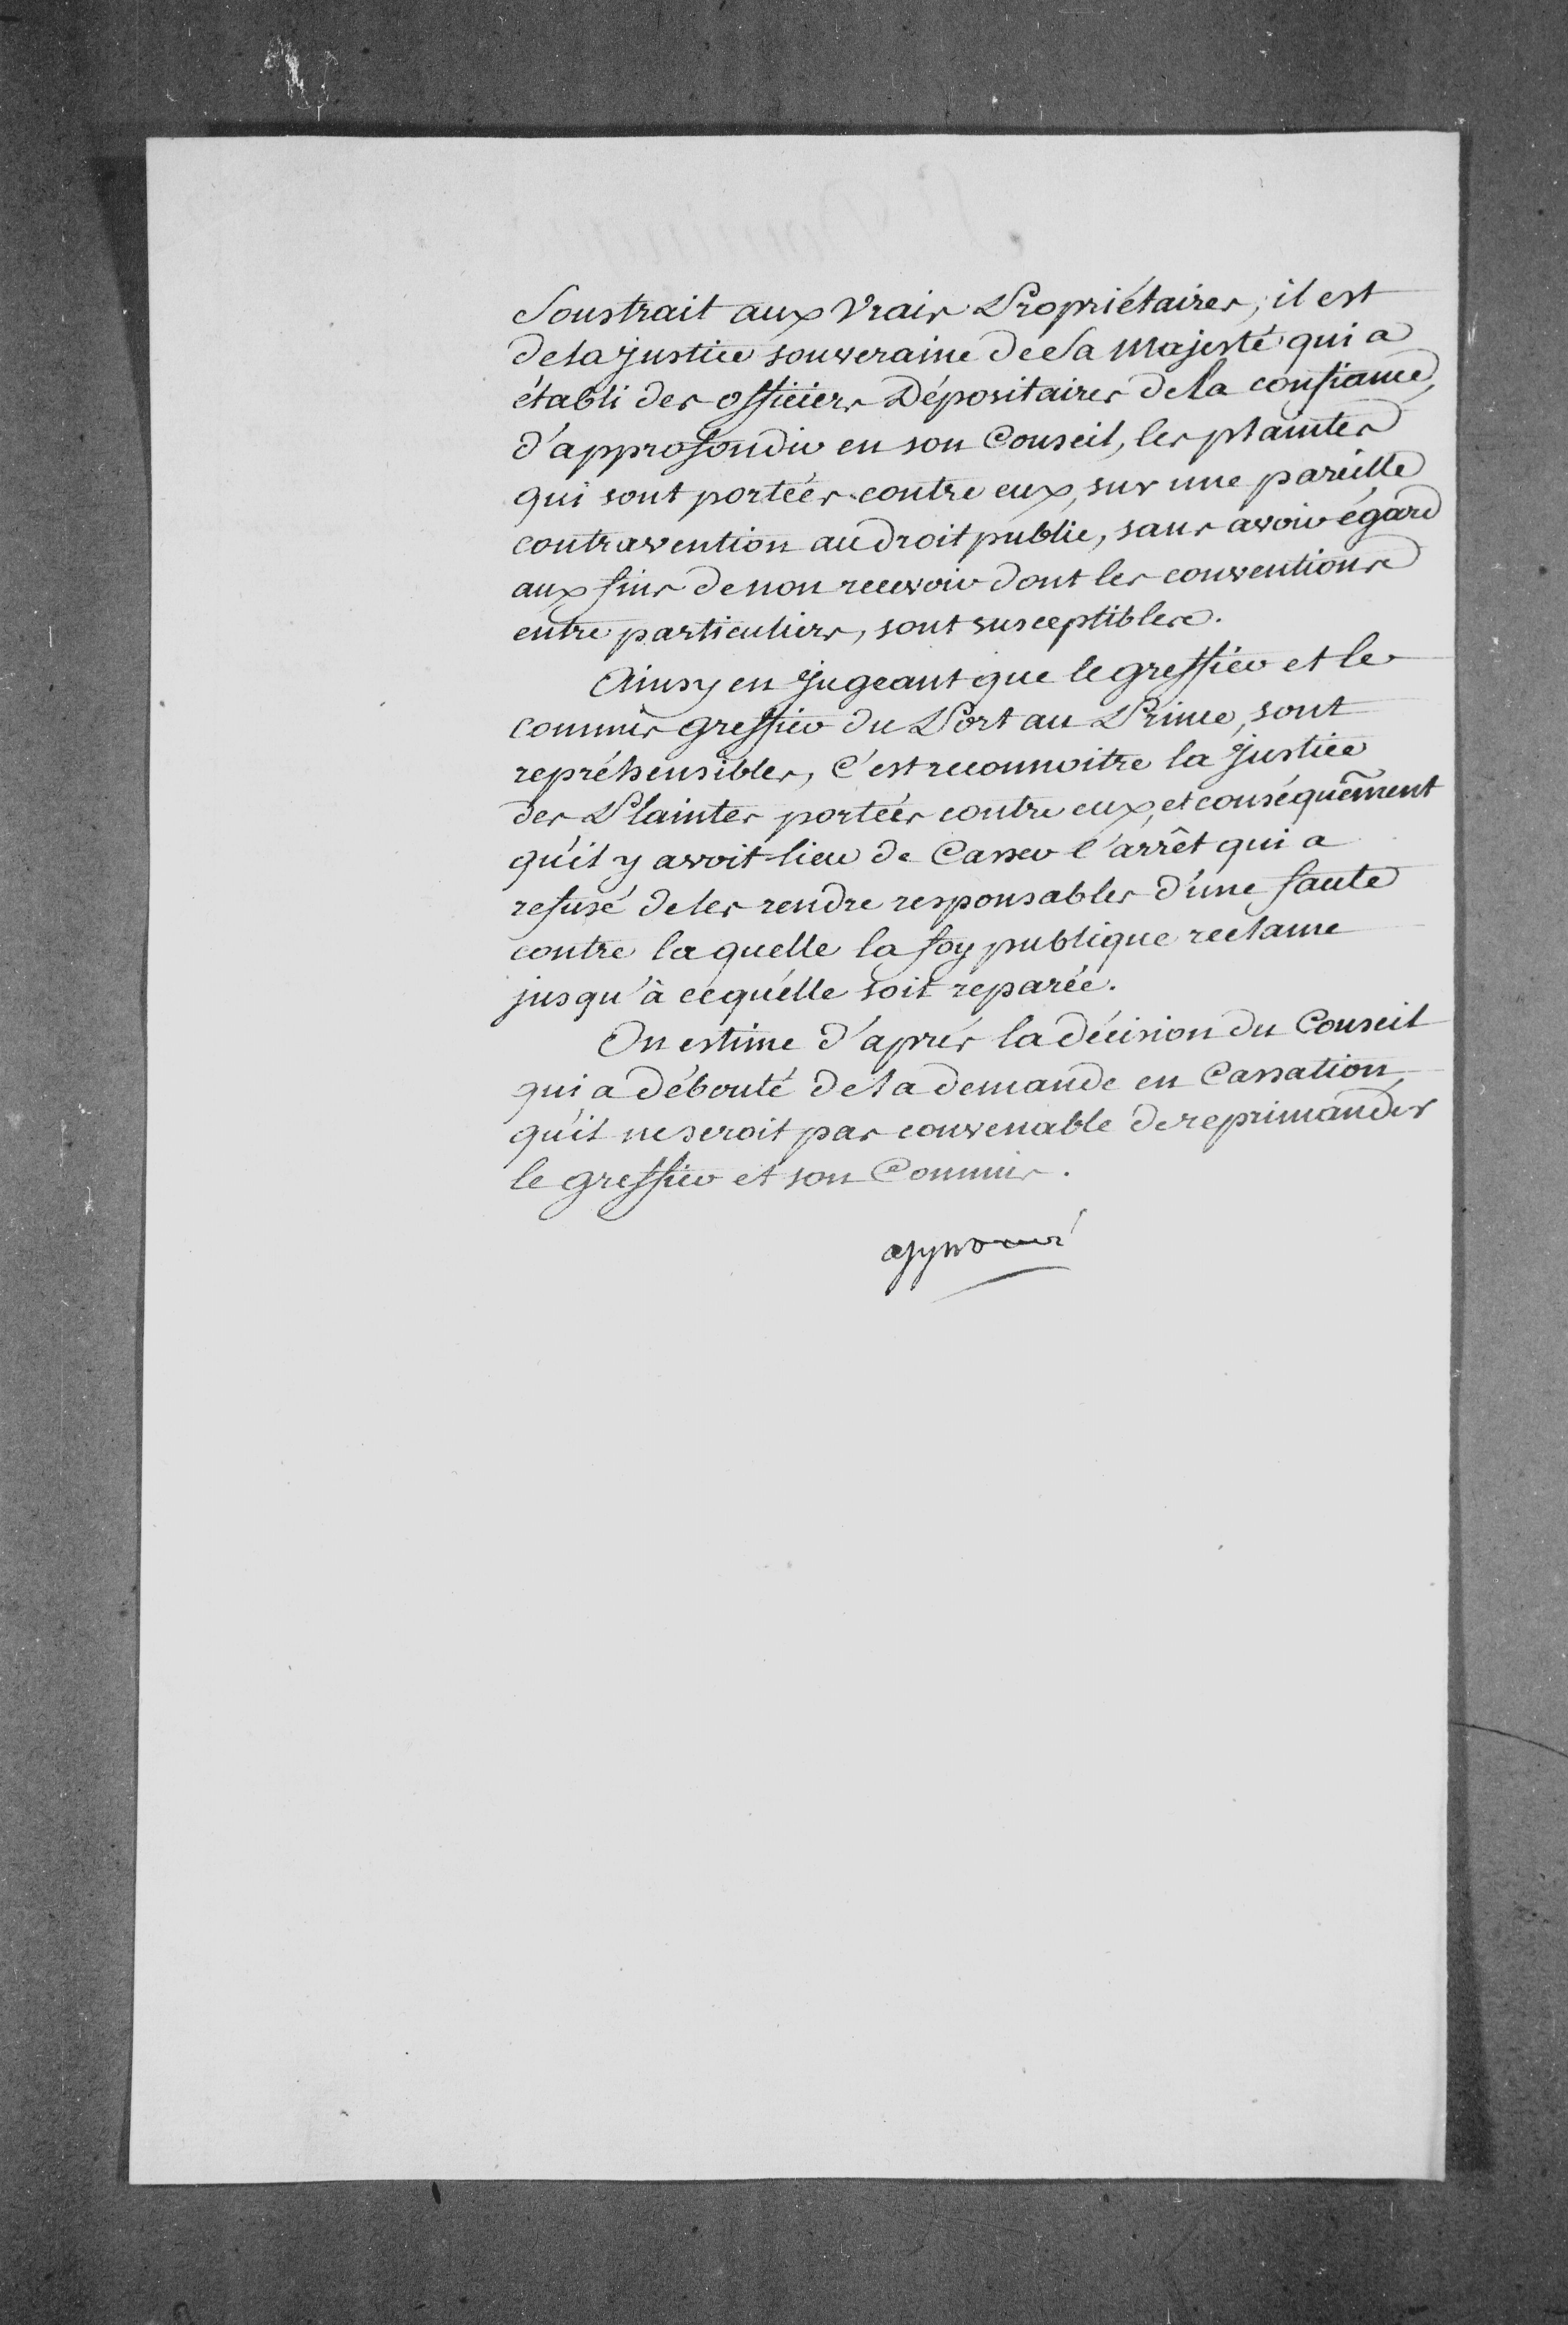 Soustrait aux Vrais Propriétaires, il est
de la justice souveraine de Sa Majesté qui a
établi des officiers Dépositaires de la confiance,
d'approfondir en son Conseil, les plaintes
qui sont portées contre eux, sur une pareille
contravention au droit public, sans avoir égard
aux fins de non recevoir dont les conventions
entre particuliers, sont susceptibles.
Ainsy en jugeant que le greffier et le
commis greffier du Port au Prince, sont
repréhensibles, c'est reconnoitre la justice
des Plaintes portées contre eux, et conséquem̃ent
qu'il y avoit lieu de Casser l'arrêt qui a
refusé de les rendre responsables d'une faute
contre la quelle la foy publique reclame
jusqu'à ce qu'elle soit reparée.
On estime d'aprés la décision du Conseil
qui a débouté de la demande en Cassation,
qu'il ne seroit pas convenable de reprimander
le greffier et son Commis.
approuvé